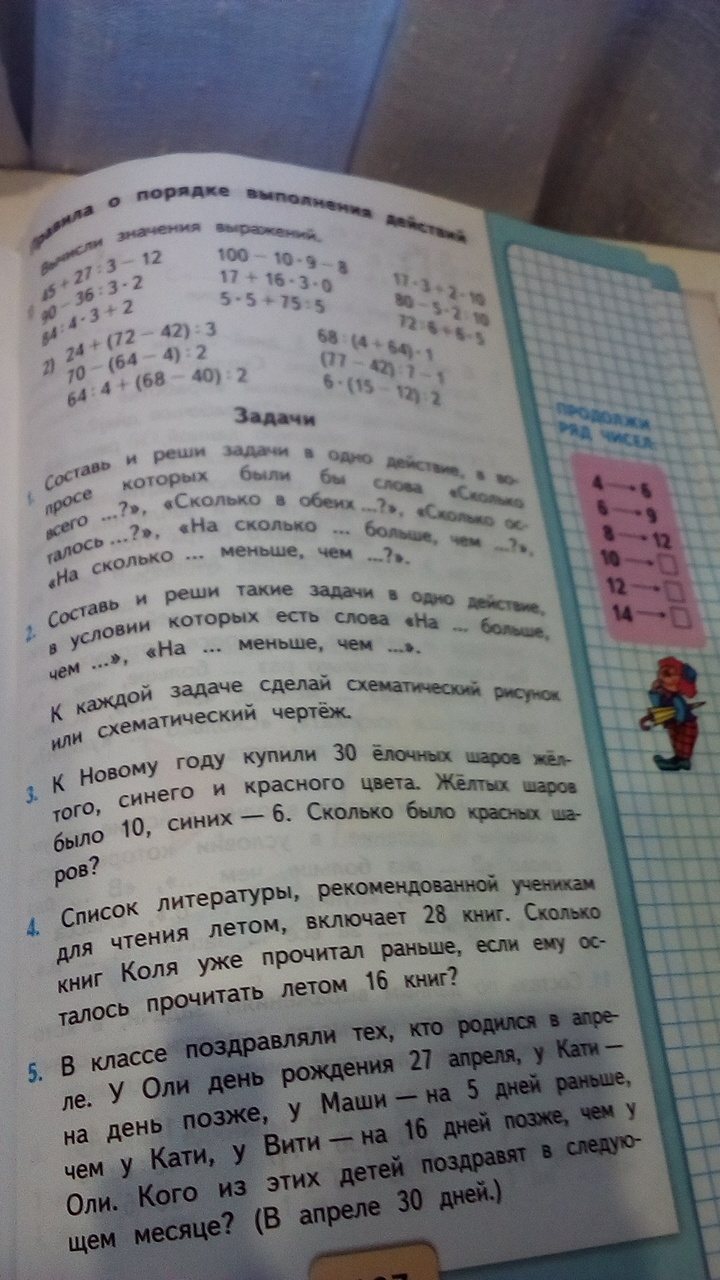 Правила о порядке выполнения действий
Вычисли значения выражений.
1) 45 + 27 : 3 − 12
90 − 36 : 3 · 2
84 : 4 · 3 + 2
100 − 10 · 9 − 8
17 + 16 · 3 · 0
5 · 5 + 75 : 5
17 · 3 + 2 · 10
80 − 5 · 2 : 10
72 : 6 + 6 · 5
2) 24 + (72 − 42) : 3
70 − (64 − 4) : 2
64 : 4 + (68 − 40) : 2
68 : (4 + 64) · 1
(77 − 42) : 7 − 1
6 · (15 − 12) : 2
Задачи
1. Составь и реши задачи в одно действие, в во-
просе которых были бы слова «Сколько
всего ...?», «Сколько в обеих ...?», «Сколько ос-
талось ...?», «На сколько ... больше, чем ...?»,
«На сколько ... меньше, чем ...?».
2. Составь и реши такие задачи в одно действие,
в условии которых есть слова «На ... больше,
чем ...», «На ... меньше, чем ...».
К каждой задаче сделай схематический рисунок
или схематический чертёж.
3. К Новому году купили 30 ёлочных шаров жёл-
того, синего и красного цвета. Жёлтых шаров
было 10, синих — 6. Сколько было красных ша-
ров?
4. Список литературы, рекомендованной ученикам
для чтения летом, включает 28 книг. Сколько
книг Коля уже прочитал раньше, если ему ос-
талось прочитать летом 16 книг?
5. В классе поздравляли тех, кто родился в апре-
ле. У Оли день рождения 27 апреля, у Кати —
на день позже, у Маши — на 5 дней раньше,
чем у Кати, у Вити — на 16 дней позже, чем у
Оли. Кого из этих детей поздравят в следую-
щем месяце? (В апреле 30 дней.)
ПРОДОЛЖИ
РЯД ЧИСЕЛ:
4 → 6
6 → 9
8 → 12
10 → □
12 → □
14 → □